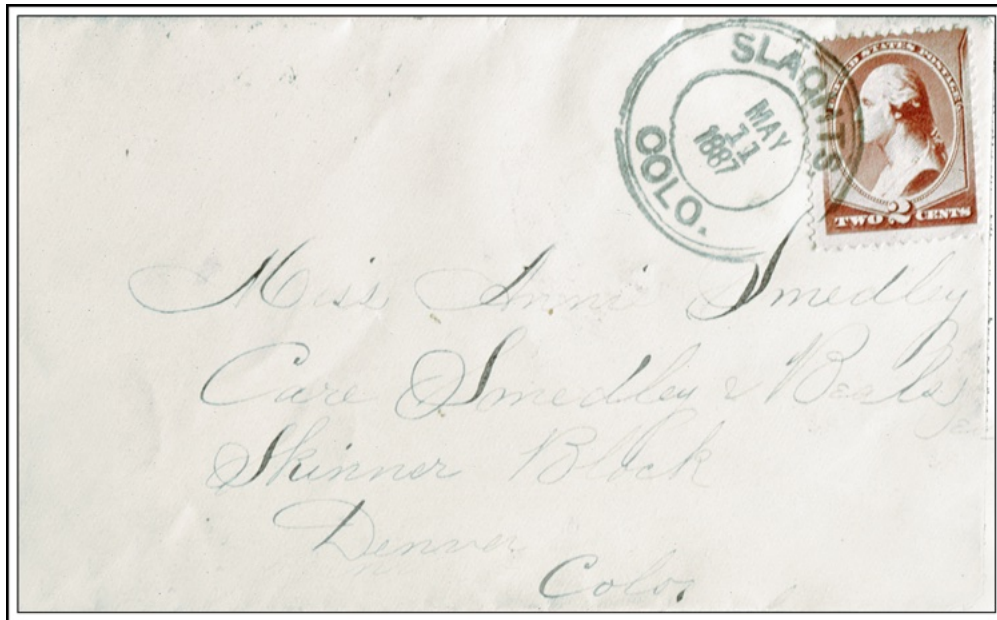 SLAGHTS
COLO.
MAY
11
1887
UNITED STATES POSTAGE
TWO 2 CENTS
Miss Anni Smedley
Care Smedley & Beals
Skinner Block
Denver
Colo.